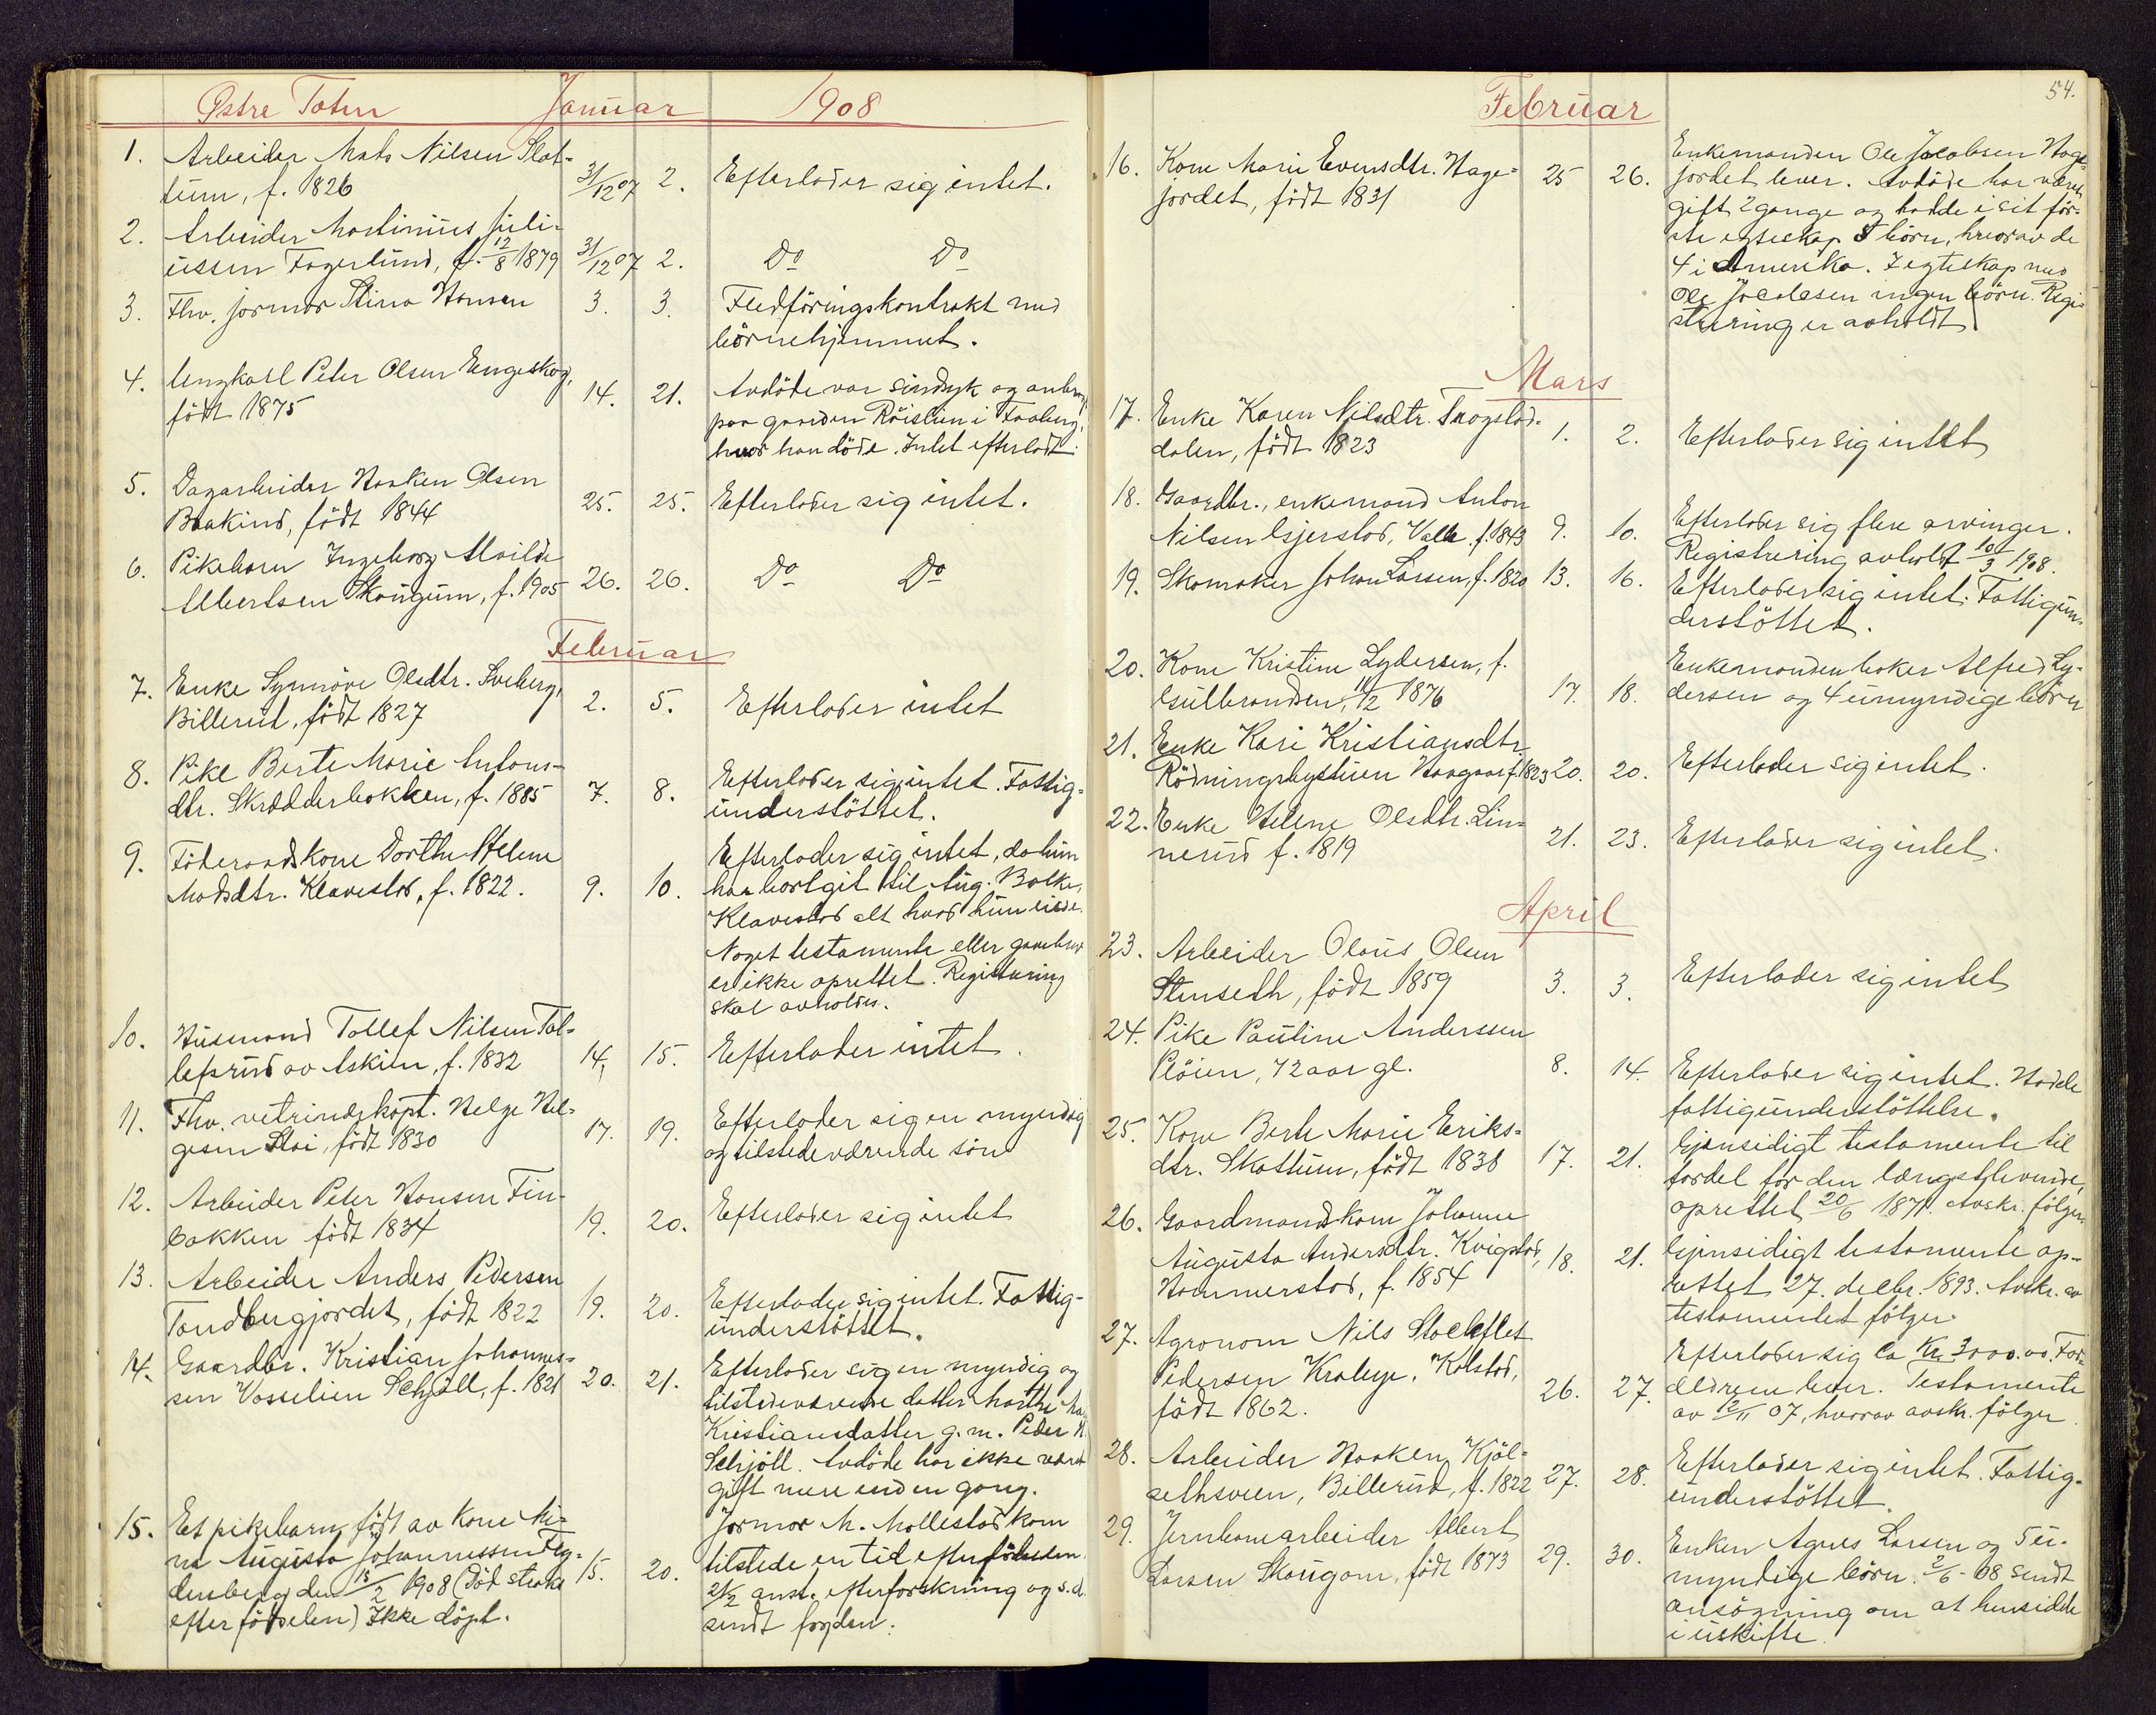 Østre Toten Januar 1908
1. Arbeider Mats Nilsen Slat-
tum, f. 1826 31/12 07 2. Efterlader sig intet.
2. Arbeider Martinius Juli-
ussen Fagerlund, f. 12/8 1879 31/12 07 2. Do Do
3. Fhv. jormor Stina Hansen 3. 3. Fledföringskontrakt med
börnehjemmet.
4. Ungkarl Peter Olsen Engeskog,
född 1875 14. 21. Avdöde var sindsyk og anbragt
paa gaarden Röislien i Faaberg,
hvor han döde. Intet efterladt.
5. Dagarbeider Haaken Olsen
Braakind, född 1844 25. 25. Efterlader sig intet.
6. Pikebarn Ingeborg Alvilde
Albertsen Skaugum, f. 1905 26. 26. Do Do
Februar
7. Enke Synnöve Olsdtr. Sveberg,
Billerud, född 1827 2. 5. Efterlader intet
8. Pike Berte Marie Antons-
dtr. Skrædderbakken, f. 1885 7. 8. Efterlader sig intet. Fattig-
understöttet.
9. Föderaadskone Dorthe Helene
Madsdtr. Klavestad, f. 1822. 9. 10. Efterlader sig intet, da hun
har bortgit til Aug. Balke,
Klavestad alt hvad hun eiede.
Noget testamente eller gavebrev
er ikke oprettet. Registrering
skal avholdes.
10. Husmand Tollef Nilsen Tol-
lefsrud av Askim, f. 1832 14. 15. Efterlader intet.
11. Fhv. vetrinærkapt. Helge Hel-
gesen Stai, född 1830 17. 19. Efterlader sig en myndig
og tilstedeværende sön
12. Arbeider Peter Hansen Fin-
bakken född 1834 19. 20. Efterlader sig intet
13. Arbeider Anders Pedersen
Tandbergjordet, född 1822 19. 20. Efterlader sig intet. Fattig-
understöttet.
14. Gaardbr. Kristian Johannes-
sen Vasselien Schjöll, f. 1821 20. 21. Efterlader sig en myndig og
tilstedeværende datter Marthe
Kristiansdatter g. m. Peder
Schjöll. Avdöde har ikke været
gift mere end en gang.
15. Et pikebarn född av Kone Mi-
na Augusta Johannessen
den 15/2 1908 (Död straks
efter födselen) Ikke döpt. 15. 20. Jormor M. Mallestad kom
tilstede en tid efter födselen.
21/2 anst. efterforskning og s.d.
sendt fogden.
54.
Februar
16. Kone Marie Evensdtr. Hage-
jordet, född 1831 25 26. Enkemanden Ole Jacobsen Hage-
jordet lever. Avdöde har været
gift 2 gange og hadde i sit för-
ste egteskap 5 börn, hvorav de
4 i Amerika. I egteskap med
Ole Jacobsen ingen börn. Regi-
strering er avholdt
Mars
17. Enke Karen Nilsdtr. Trogstad-
dalen, född 1823 1. 2. Efterlader sig intet
18. Gaardbr., enkemand Anton
Nilsen Gjerstad, Valle, f. 1843 9. 10. Efterlader sig flere arvinger.
Registrering avholdt 10/3 1908.
19. Skomaker Johan Larsen, f. 1820 13. 16. Efterlader sig intet. Fattigun-
derstöttet.
20. Kone Kristine Lydersen, f.
Gulbrandsen, 11/2 1876 17. 18. Enkemanden baker Alfred Ly-
dersen og 4 umyndige börn
21. Enke Kari Kristiansdtr.
Rödningsbystuen Haagaar f. 1823 20. 20. Efterlader sig intet.
22. Enke Helene Olsdtr. Lin-
nerud f. 1819 21. 23. Efterlader sig intet.
April
23. Arbeider Olaus Olsen
Stenseth, född 1859 3. 3. Efterlader sig intet
24. Pike Pauline Anderssen
Plöien, 72 aar gl. 8. 14. Efterlader sig intet. Hadde
fattigunderstöttelse.
25. Kone Berte Marie Eriks-
dtr. Skattum, född 1838 17. 21. Gjensidigt testamente til
fordel for den længstlevende,
oprettet 20/6 1871. Avskr. fölger.
26. Gaardmandskone Johanne
Augusta Andersdtr. Kvigstad,
Hammerstad, f. 1854 18. 21. Gjensidigt testamente op-
rettet 27. decbr. 1893. Avskr. av
testamentet fölger.
27. Agronom Nils Stockflet
Pedersen Krabye, Kolstad,
född 1862. 26. 27. Efterlader sig ca Kr. 3000.00. For-
ældrene lever. Testamente
av 12/11 07, hvorav avskr. fölger.
28. Arbeider Haaken Kjöl-
sethsveen, Billerud, f. 1822 27. 28. Efterlader sig intet. Fattig-
understöttet.
29. Jernbanearbeider Albert
Larsen Skaugom, född 1873 29. 30. Enken Agnes Larsen og 5 u-
myndige börn. 2/6-08 sendt
ansögning om at hensidde
i uskifte.